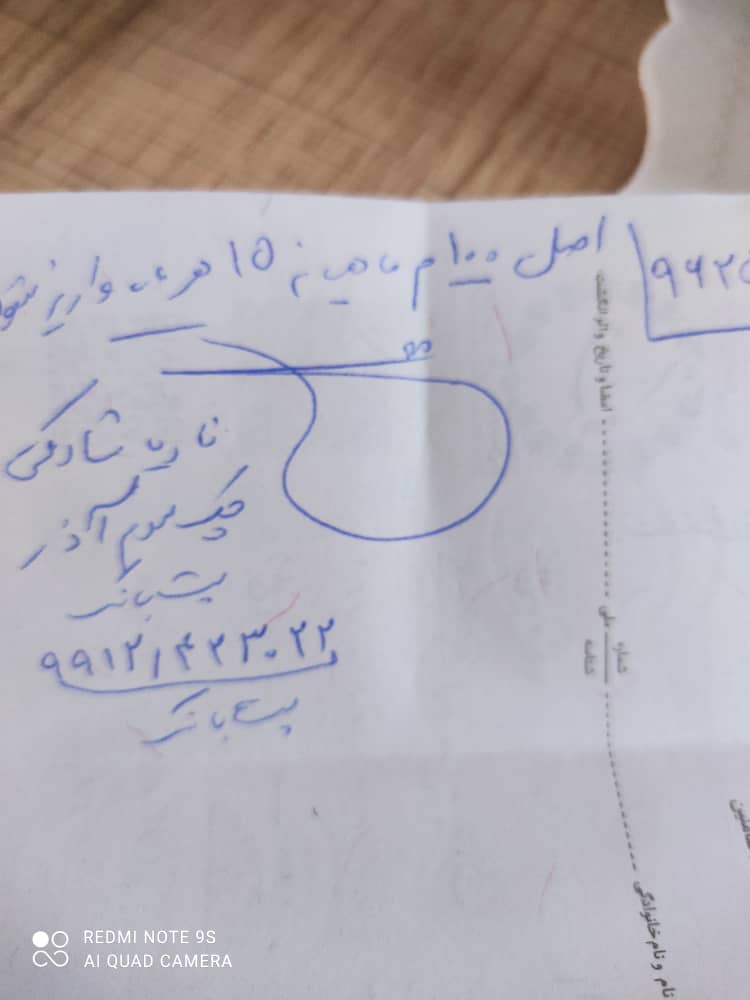 ۹۶۲۵
اصل ۱۰۰م ماهیانه ۱۵ هر ماه واریز شود
شادکی
چک سوم آذر
پست بانک
۹۹۱۲/۴۲۳۰۲۲
پست بانک
امضا و تاریخ و اثر انگشت
شماره ملی
شناسه
نام و نام خانوادگی
REDMI NOTE 9S
AI QUAD CAMERA